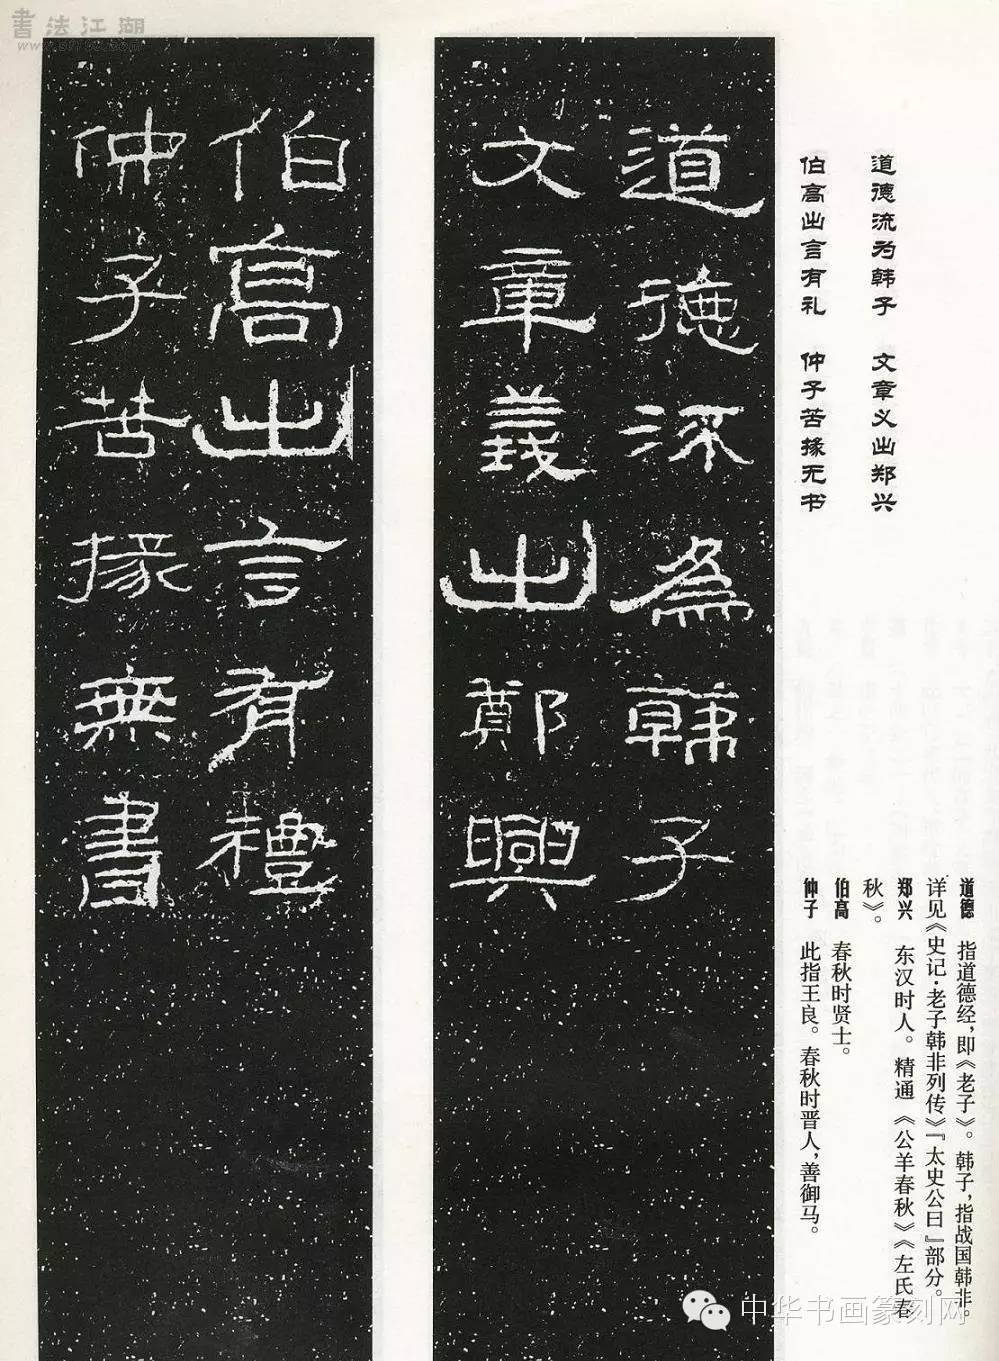 書法江湖
道德流为韩子 文章义出郑兴
伯高出言有礼 仲子苦掾无书
道德深為韓子
文章義出鄭興
伯高出言有禮
仲子苦掾無書
道德 指道德经，即《老子》。韩子，指战国韩非。
详见《史记·老子韩非列传》『太史公曰』部分。
郑兴 东汉时人。精通《公羊春秋》《左氏春
秋》。
伯高 春秋时贤士。
仲子 此指王良。春秋时晋人，善御马。
中华书画篆刻网